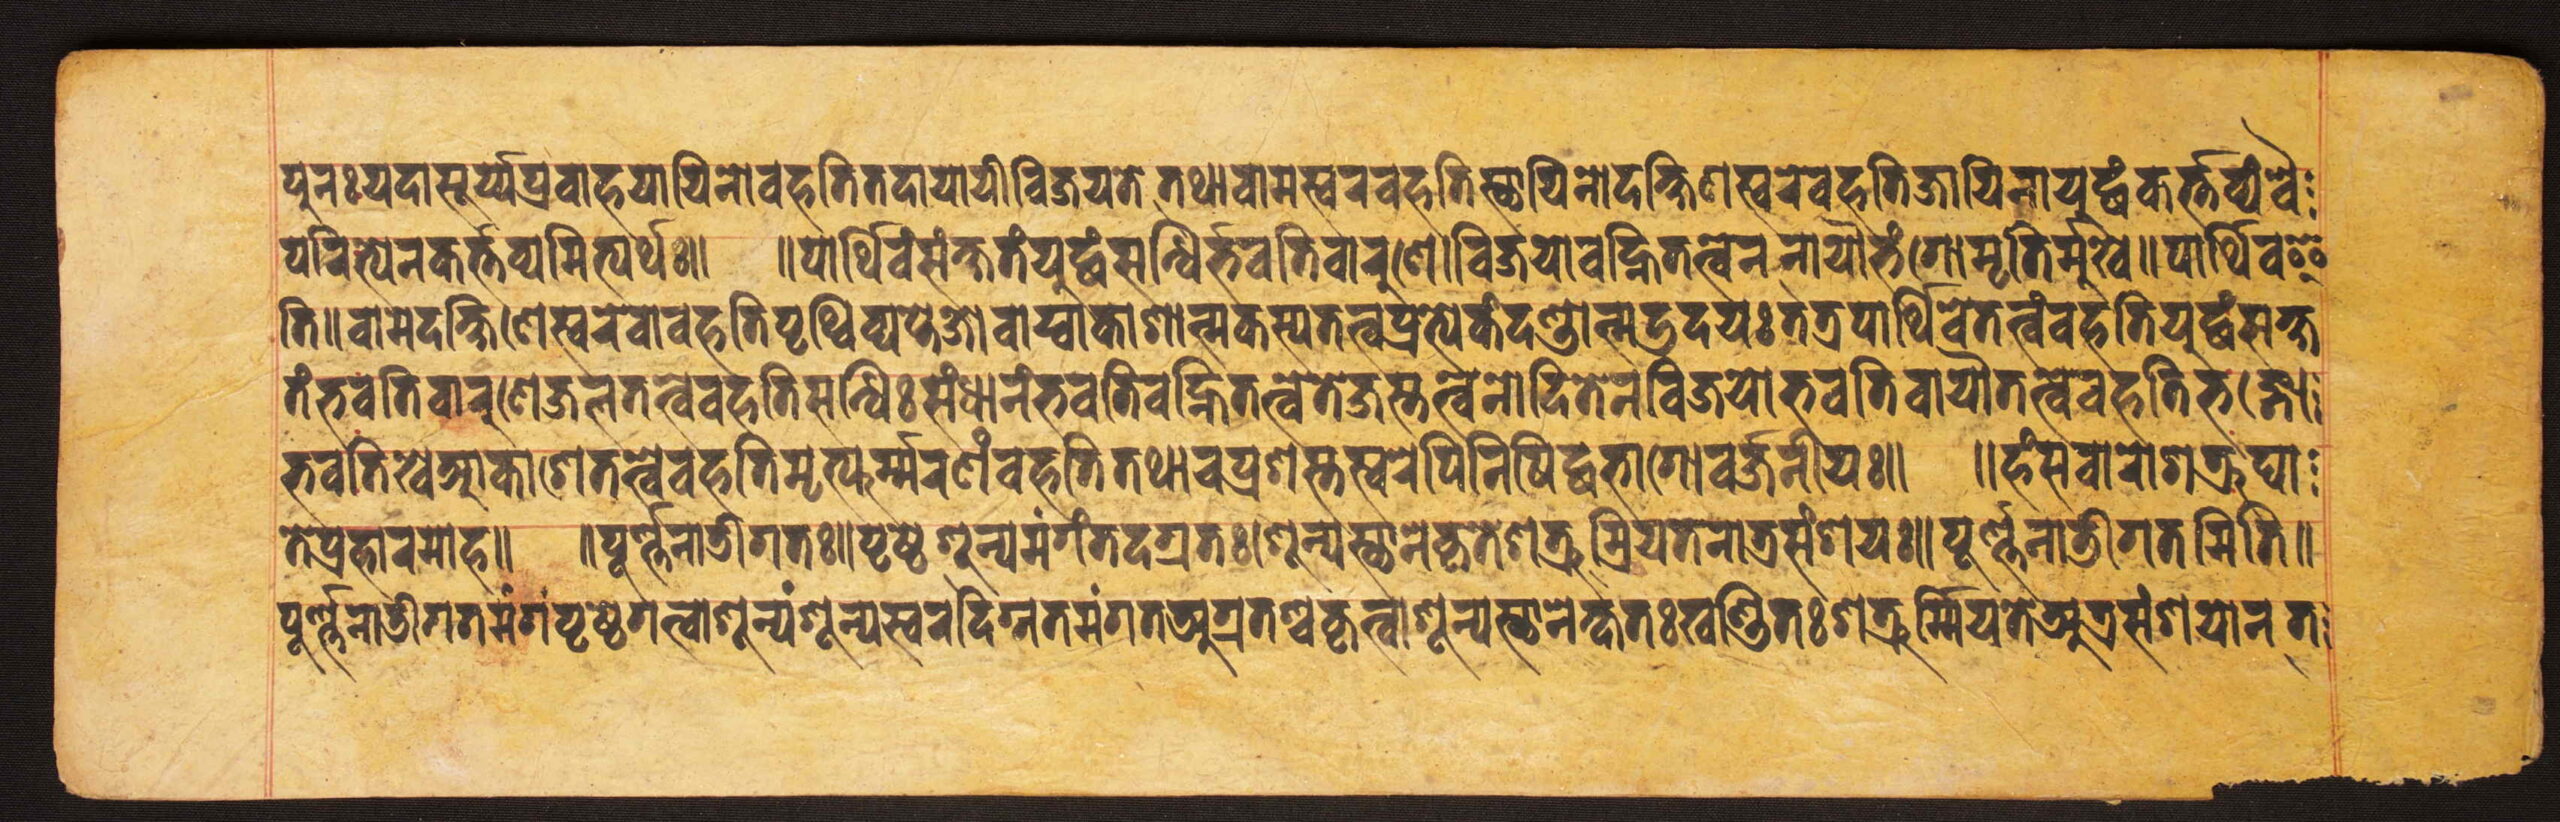 पुनःयदासूर्य्यप्रवाहयायिनोवहतितदायायीविजयते तथावामस्वरवहतिस्थायिनोदक्षिणस्वरेवहतिजायिनायुद्धंकर्त्तव्यंवै
परित्येनकर्त्तव्यमित्यर्थः॥ ॥पार्थिवंसंक्षतंयुद्धंसन्धिर्भवतिवारुणे।विजयावह्नितत्वेननायौभंगोमृतिर्मुखे॥पार्थिव
ति॥वामेदक्षिणेस्वरेवावहतिपृथिव्यप्तेजोवाय्वाकाशात्मकस्यतत्वप्रत्येकंदण्डात्मदुदयःतत्रपार्थिवेतत्वंवहतियुद्धंसक्ष
तंभवतिवारुणेजलतत्वेवहतिसन्धिःसंधानंभवतिवह्नितत्वेतेजस्तत्वेनोदितेनविजयोभवतिवायौतत्वेवहतिभङ्गो
भवतिखेआकाशेतत्वेवहतिमृत्युर्म्मरणंवहतितथाचप्रशस्तस्वरेपिनिषिद्धभागोवर्जनीयः॥ ॥हंसचारोशत्रुघा
तेप्रहारमाह॥ ॥पूर्ण्णनाडीगतः॥पृष्ठेशून्यमंगंतदग्रतः।शून्यस्थानेकृतेशत्रुम्रियतेनात्रसंशयः॥पूर्ण्णनाडीगतमिति॥
पूर्ण्णनाडीगतमंगंपृष्ठेगत्वाशून्यंशून्यस्वरदिग्गतमंगतअग्रतश्चकृत्वाशून्यस्थानेक्षतःखण्डितःशत्रुर्म्म्रियतेअत्रसंशयोनत